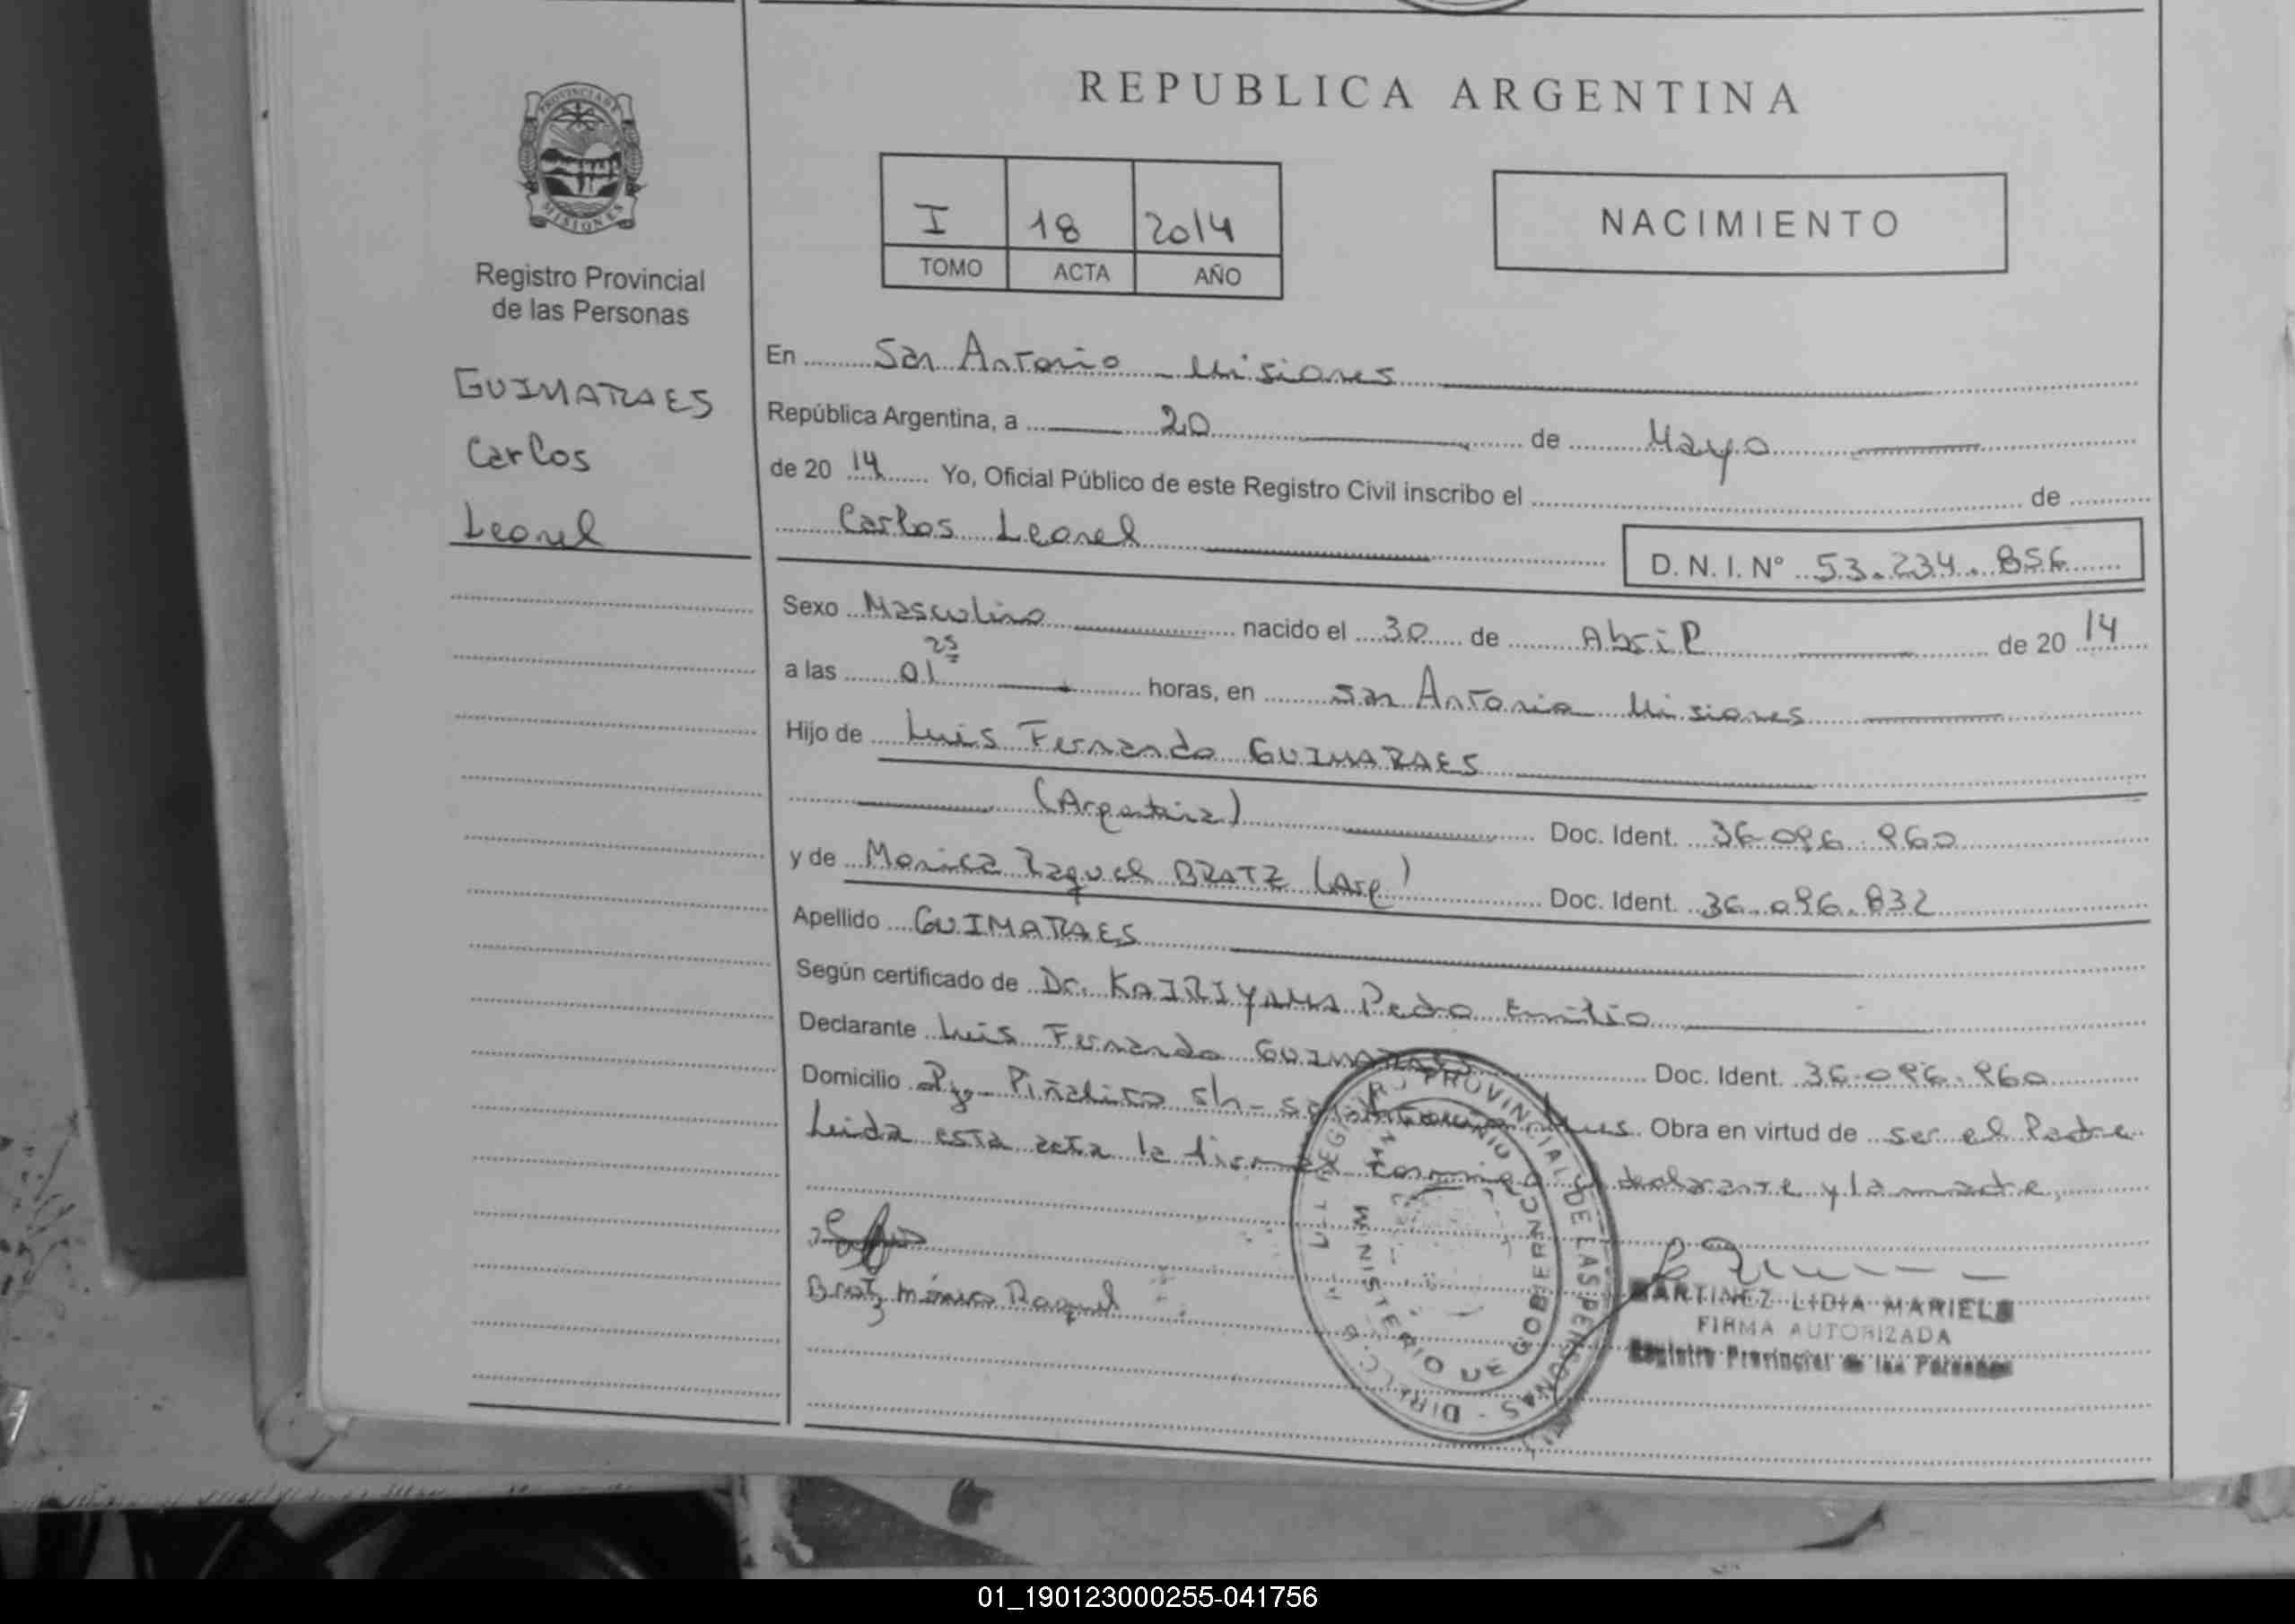 REPUBLICA ARGENTINA
PROVINCIA DE
MISIONES
Registro Provincial
de las Personas
GUIMARAES
Carlos
Leonel
I 18 2014
TOMO ACTA AÑO
NACIMIENTO
En San Antonio - Misiones
República Argentina, a 20 de Mayo
de 20 14 Yo, Oficial Público de este Registro Civil inscribo el de
Carlos Leonel D. N. I. N° 53.234.856
Sexo Masculino nacido el 30 de Abril de 20 14
a las 01 25 horas, en San Antonio Misiones
Hijo de Luis Fernando GUIMARAES
(Argentina) Doc. Ident. 36.096.960
y de Monica Raquel BRATZ (Arg) Doc. Ident. 36.096.832
Apellido GUIMARAES
Según certificado de Dr. KAIRIYAMA Pedro Emilio
Declarante Luis Fernando GUIMARAES Doc. Ident. 36.096.960
Domicilio Pje. Piñalito s/n - San Antonio Mnes. Obra en virtud de ser el Padre
Leida esta acta la firman conmigo el declarante y la madre,
Bratz Mónica Raquel
DIRECC. G DEL REGISTRO PROVINCIAL DE LAS PERSONAS
MINISTERIO DE GOBIERNO
MARTINEZ LIDIA MARIELA
FIRMA AUTORIZADA
Registro Provincial de las Personas
01_190123000255-041756